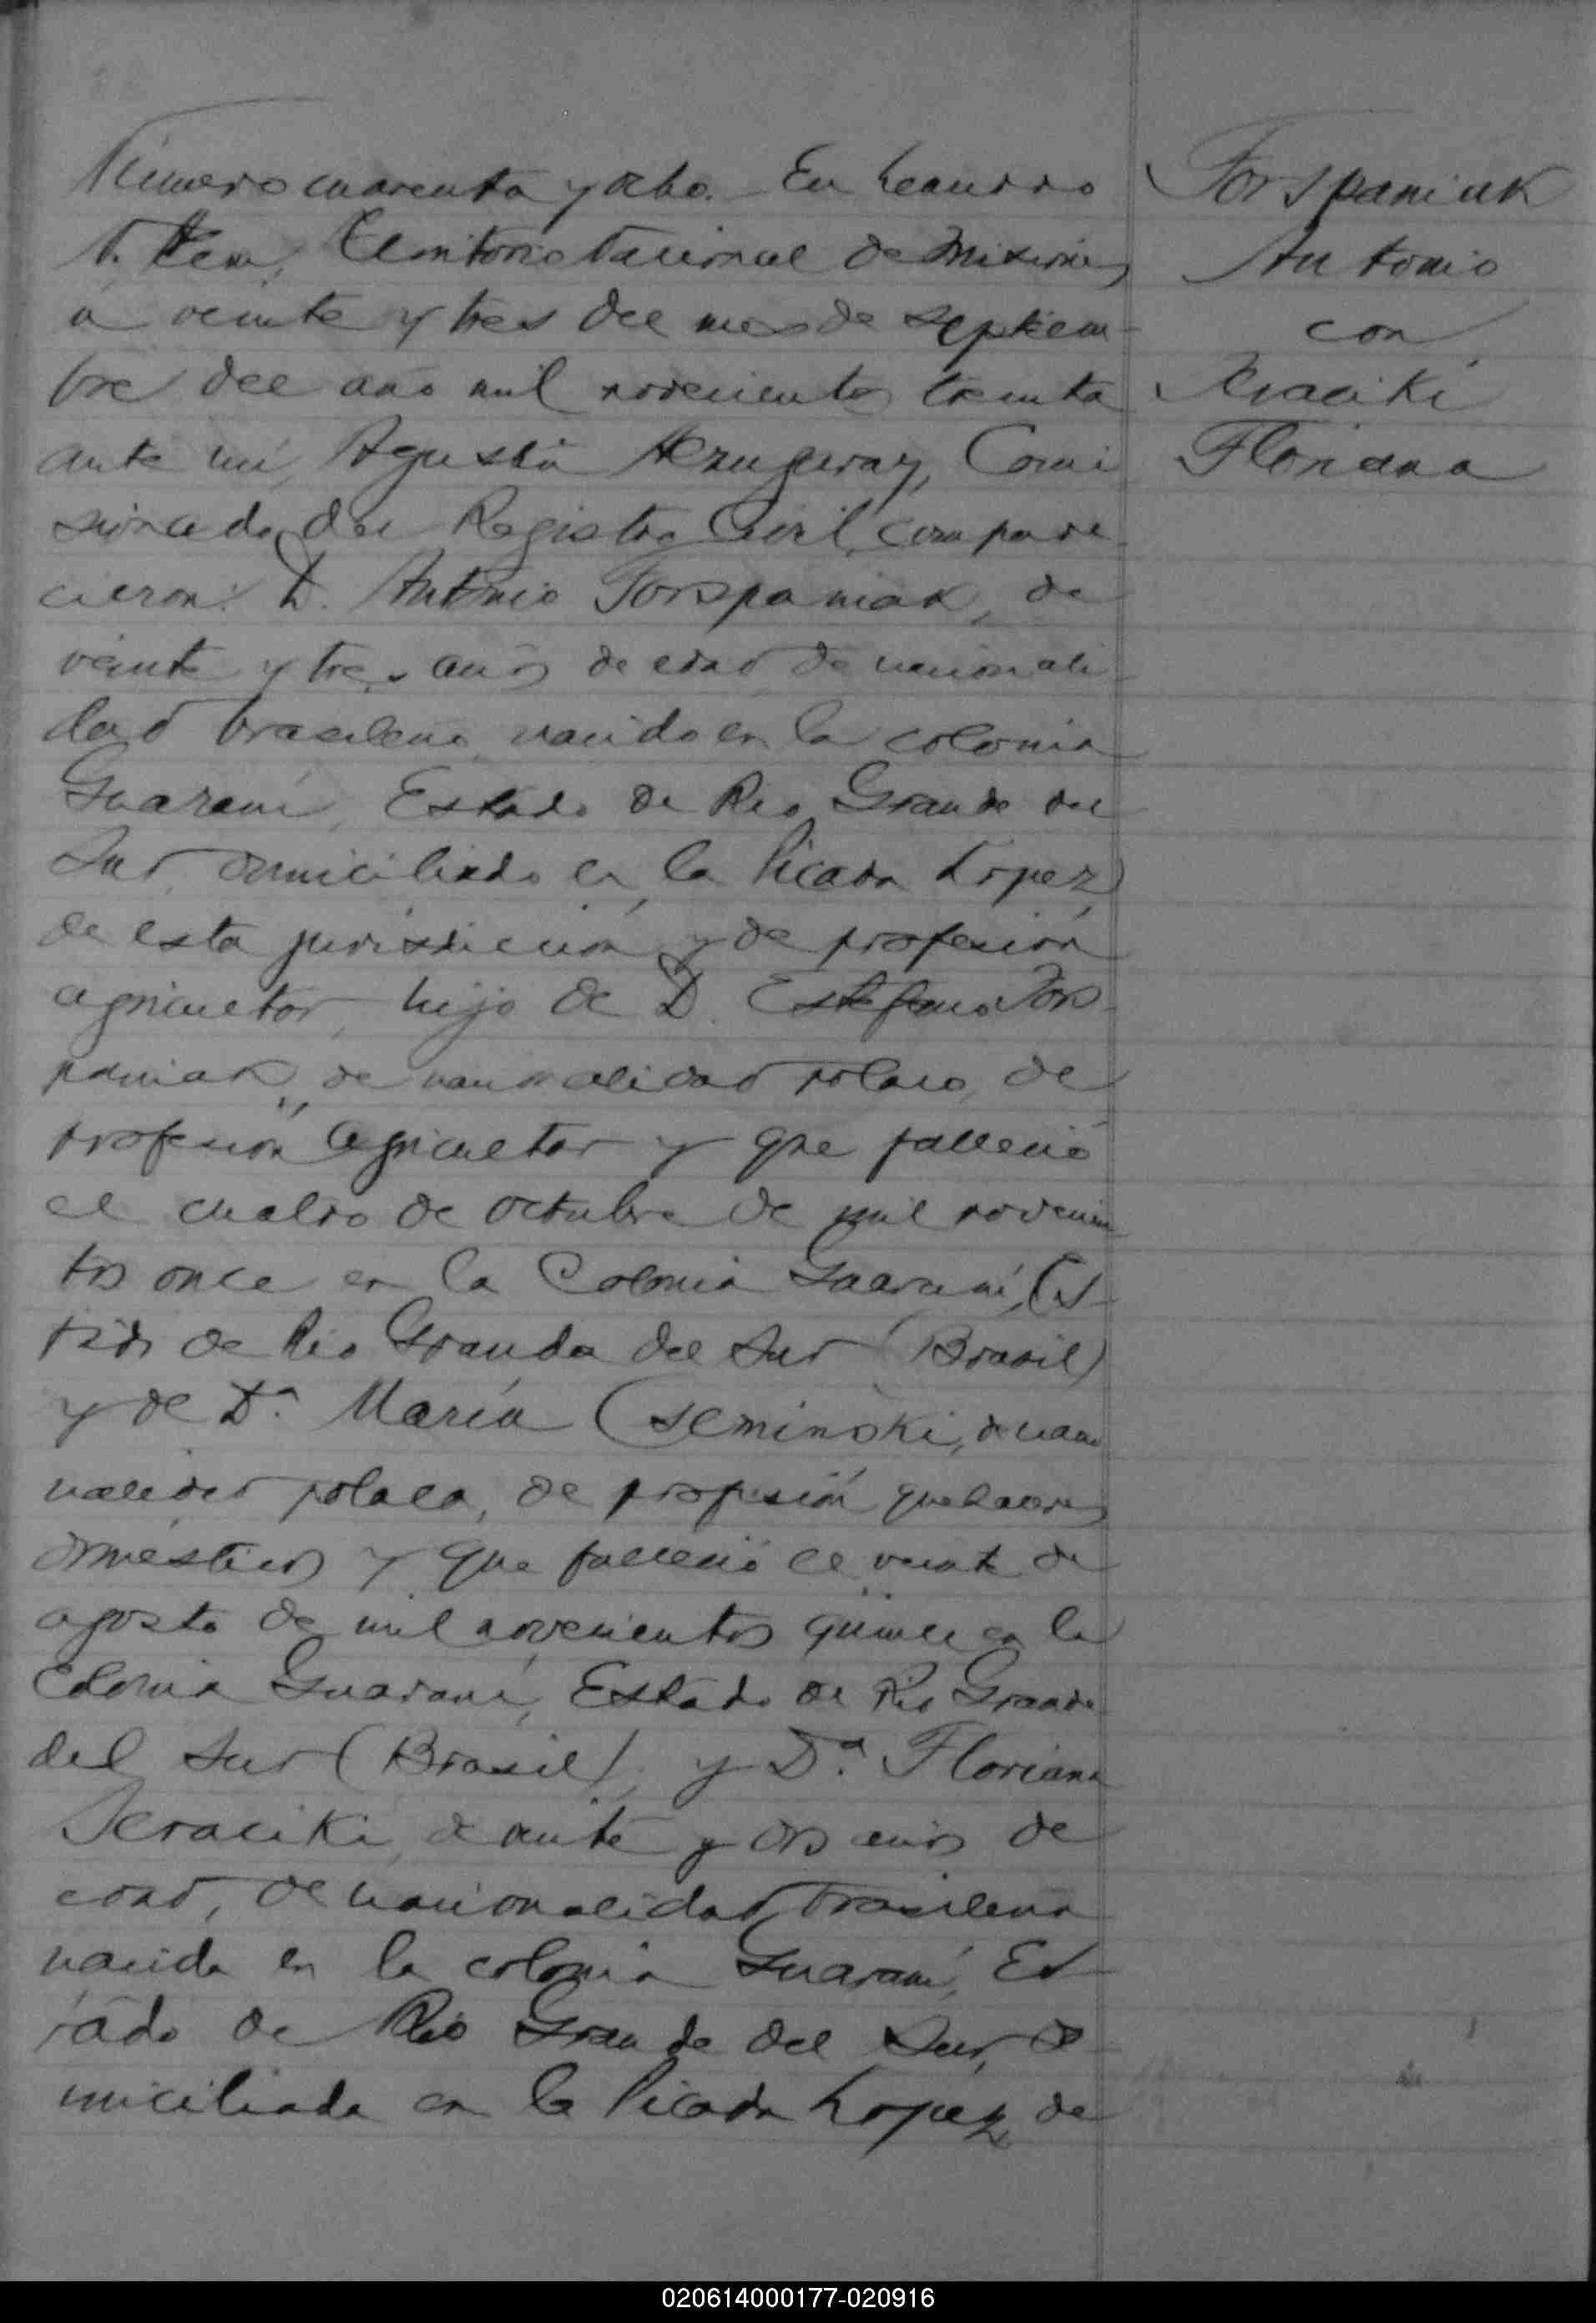 Número cuarenta y ocho. En Leandro
N. Alem, Territorio Nacional de Misiones
a veinte y tres del mes de septiem-
bre del año mil novecientos treinta
ante mí, Agustín Comi
sionado del Registro Civil, compare-
cieron: D. Antonio Forspaniak, de
veinte y tres años de edad de nacionali-
dad brasileña nacido en la colonia
Guaraní, Estado de Rio Grande del
Sud, domiciliado en la Picada Lopez
de esta jurisdiccion y de profesión
agricultor, hijo de D. Estefano Fors-
paniak, de nacionalidad polaco, de
profesión agricultor y que falleció
el cuatro de octubre de mil novecien
tos once en la Colonia Guaraní, Es-
tado de Rio Grande del Sur (Brasil)
y de Da. María Cseminski, de nacio
nalidad polaca, de profesión quehaceres
domésticos y que falleció el veinte de
agosto de mil novecientos quince en la
Colonia Guaraní, Estado de Rio Grande
del Sur (Brasil), y Da. Floriana
Seraciki, de veinte y dos años de
edad, de nacionalidad brasilena
nacida en la colonia Guaraní, Es-
tado de Rio Grande del Sur, do-
miciliada en la Picada Lopez, de
Forspaniak
Antonio
con
Seraciki
Floriana
020614000177-020916